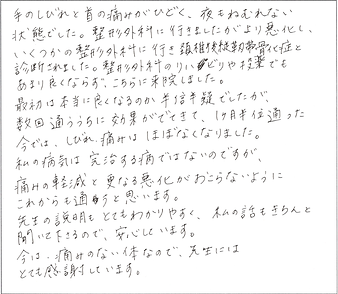 手のしびれと首の痛みがひどく、夜もねむれない
状態でした。整形外科に行きましたがより悪化し、
いくつかの整形外科に行き頚椎後縦靭帯骨化症と
診断されました。整形外科のリハビリや投薬でも
あまり良くならず、こちらに来院しました。
最初は本当に良くなるのか半信半疑でしたが、
数回通ううちに効果がでてきて、1ヶ月半位通った
今では、しびれ、痛みはほぼなくなりました。
私の病気は完治する病ではないのですが、
痛みの軽減と更なる悪化がおこらないように
これからも通おうと思います。
先生の説明もとてもわかりやすく、私の話もきちんと
聞いて下さるので、安心しています。
今は、痛みのない体なので、先生には
とても感謝しています。